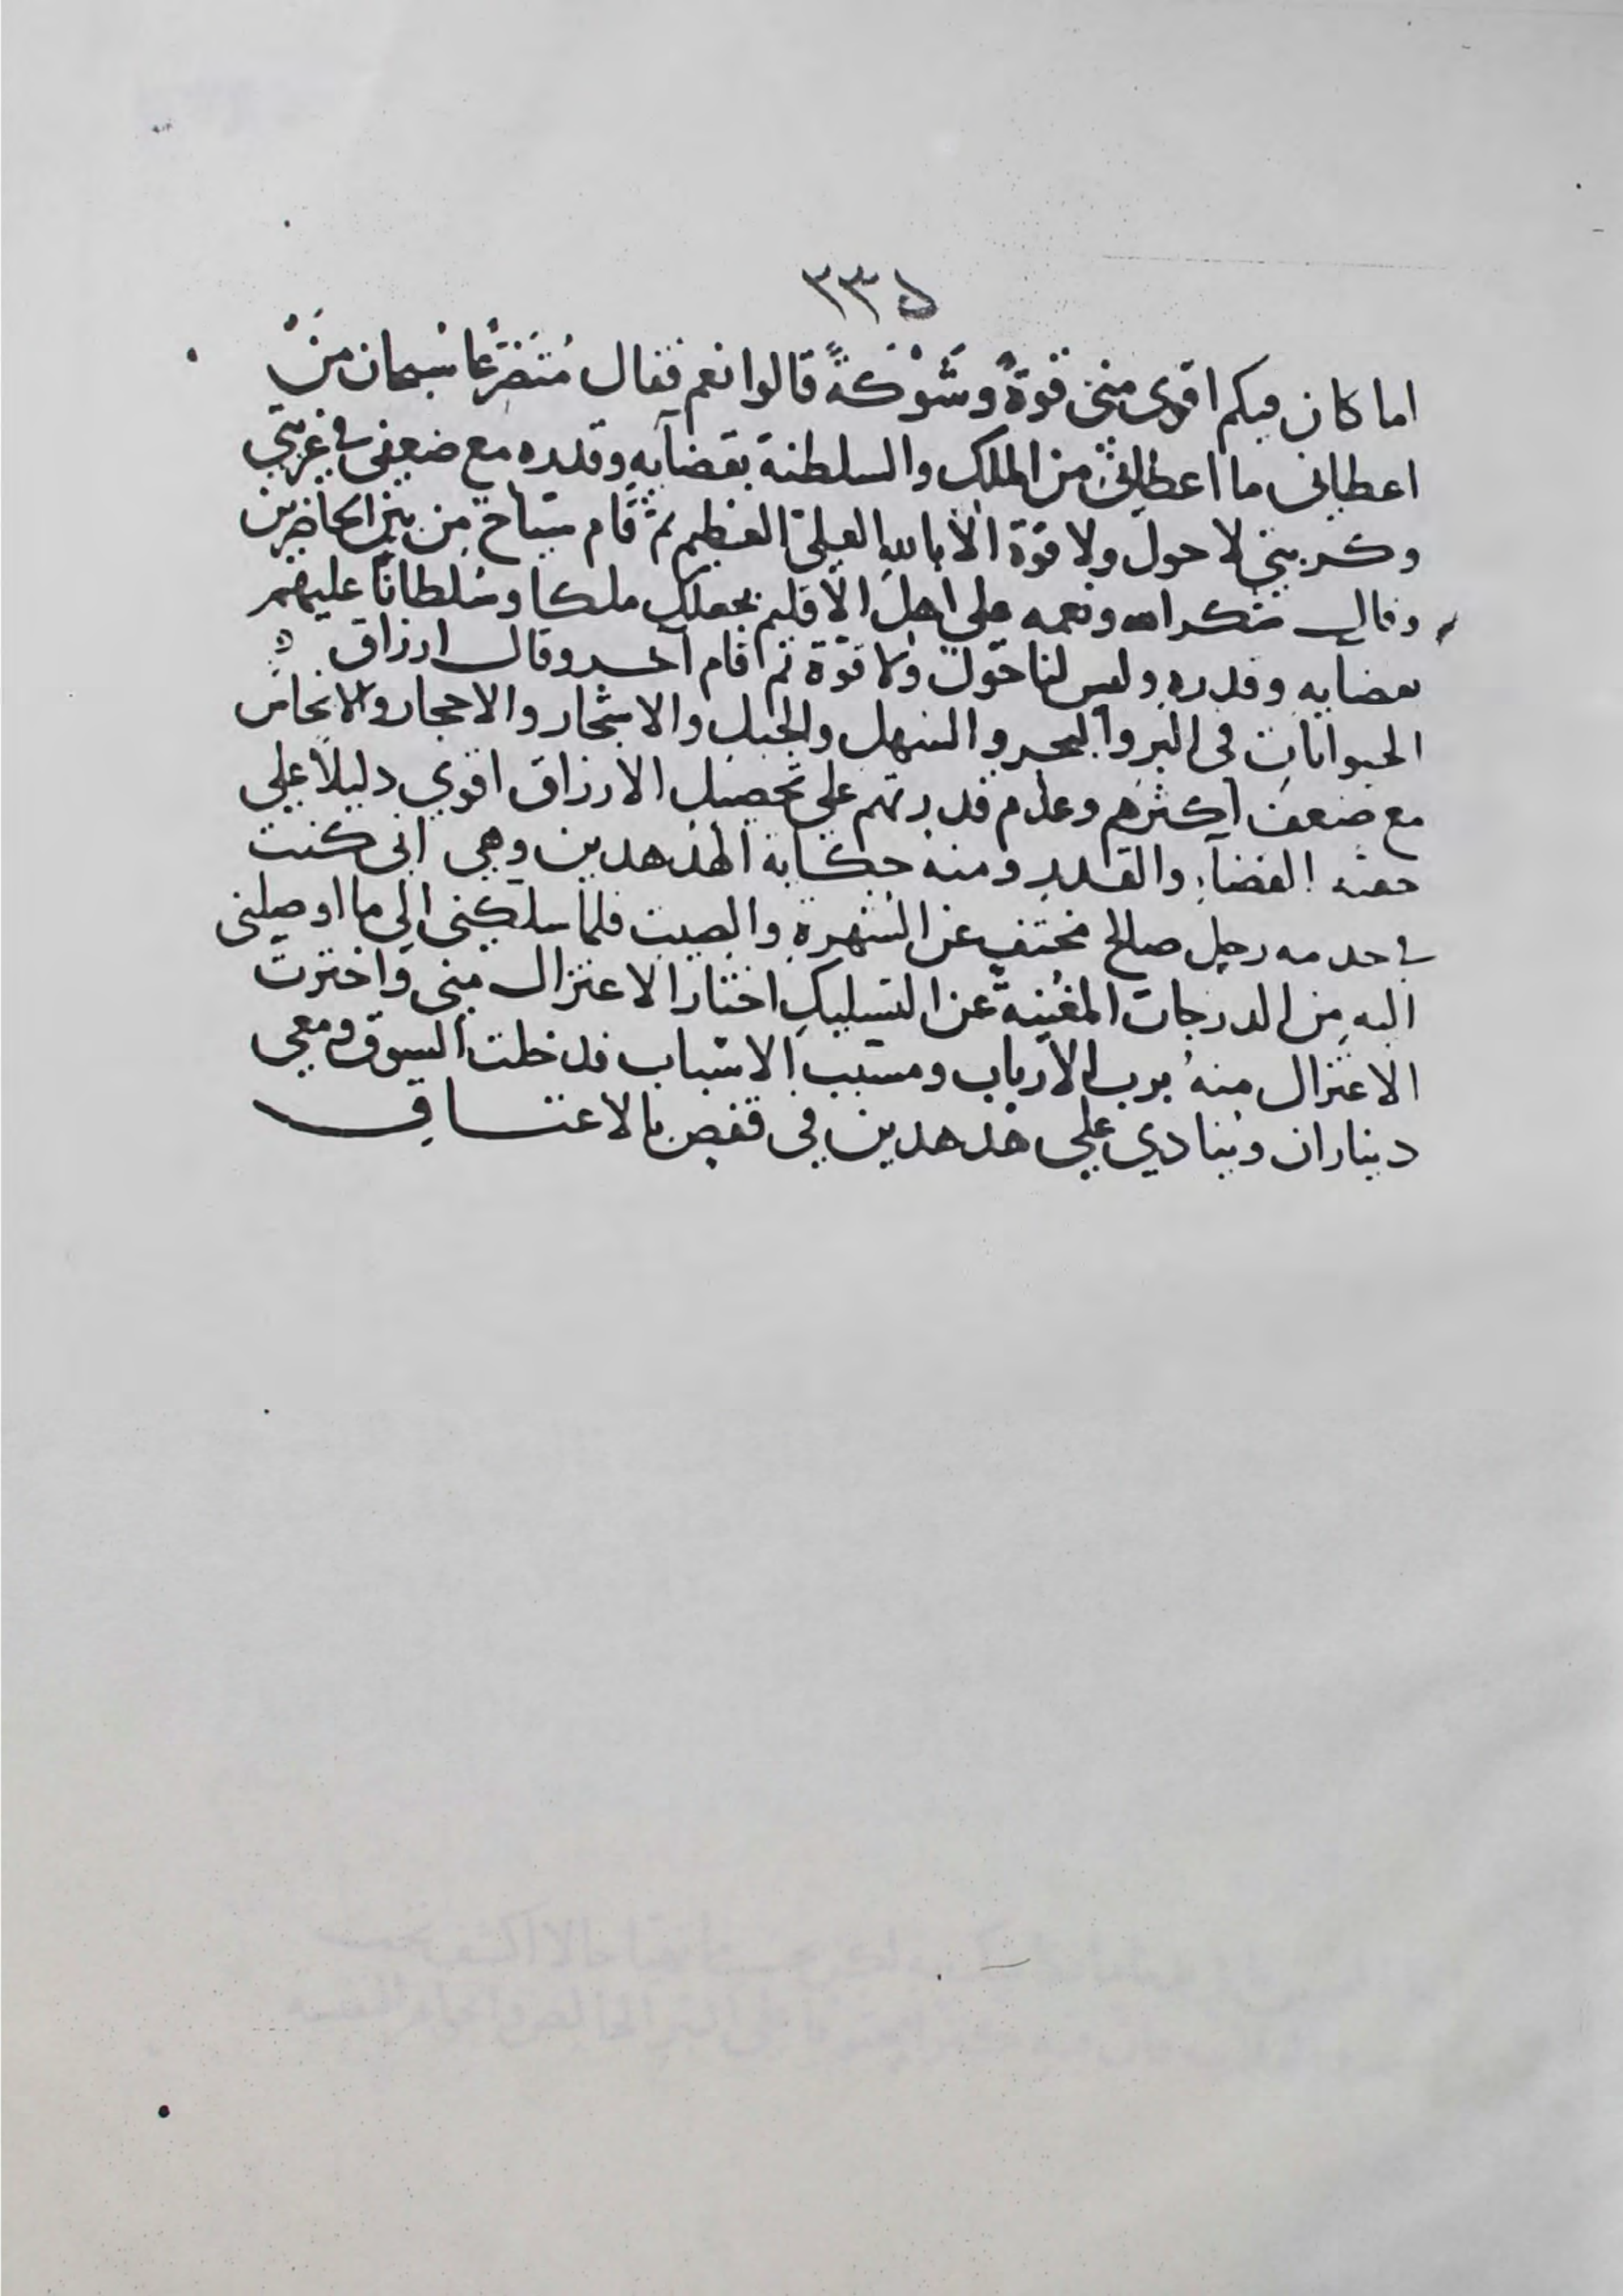 ٢٣٥
اما كان فيكم اقوى منى قوةً وشَوْكةً قالوا نعم فقال مُتَضَرِّعًا سُبحان مَنْ
اعطانى ما اعطانى من الملك والسلطنة بقضآيه وقدره مع ضعفى فى غربتي
وكربتي لا حول ولا قوّة الّا بالله العليّ العظيم ثم قام سيّاح من بين الحاضرين
وقال شكر الله ونعمه على اهل الاقليم بجعلك ملكا وسُلطانًا عليهم
بقضايه وقدره وليس لنا حول ولا قوّة ثم قام آخر وقال ارزاق
الحيوانات فى البر والبحر والسهل والجبل والاشجار والاحجار والانجاس
مع ضعف اكثرهم وعدم قدرتهم على تحصيل الارزاق اقوي دليلاً علي
حقية القضآء والقدر ومنه حكاية الهدهدين وهي انى كنت
فى خدمه رجل صالح مختفٍ عن الشهرة والصيت فلما سلكنى الى ما اوصلنى
اليه من الدرجات المغنِية عن التسليك اختار الاعتزال منى واخترت
الاعتزال منهُ برب الارباب ومسبب الاسباب فدخلت السوق ومعي
ديناران وينادي علي هدهدين في قفص بالاعتساف